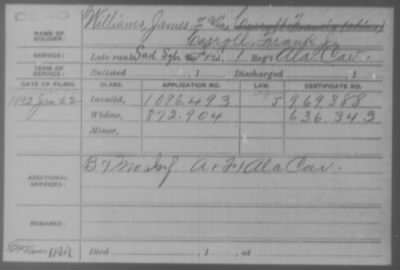 DEAD
NAME OF SOLDIER: Williams, James F. alias Carroll, Frank J.
SERVICE: Late rank, Sad Sgtr Reg't Ala Cav.
TERM OF SERVICE: Enlisted , 1 Discharged , 1
DATE OF FILING. CLASS. APPLICATION NO. LAW. CERTIFICATE NO.
1892 Jan 22 Invalid, 1086.493 J 969.388
Widow, 872.904 636.343
Minor,
ADDITIONAL SERVICES: B 7 Mo Inf. A & F 1 Ala Cav.
REMARKS:
Died , 1 , at